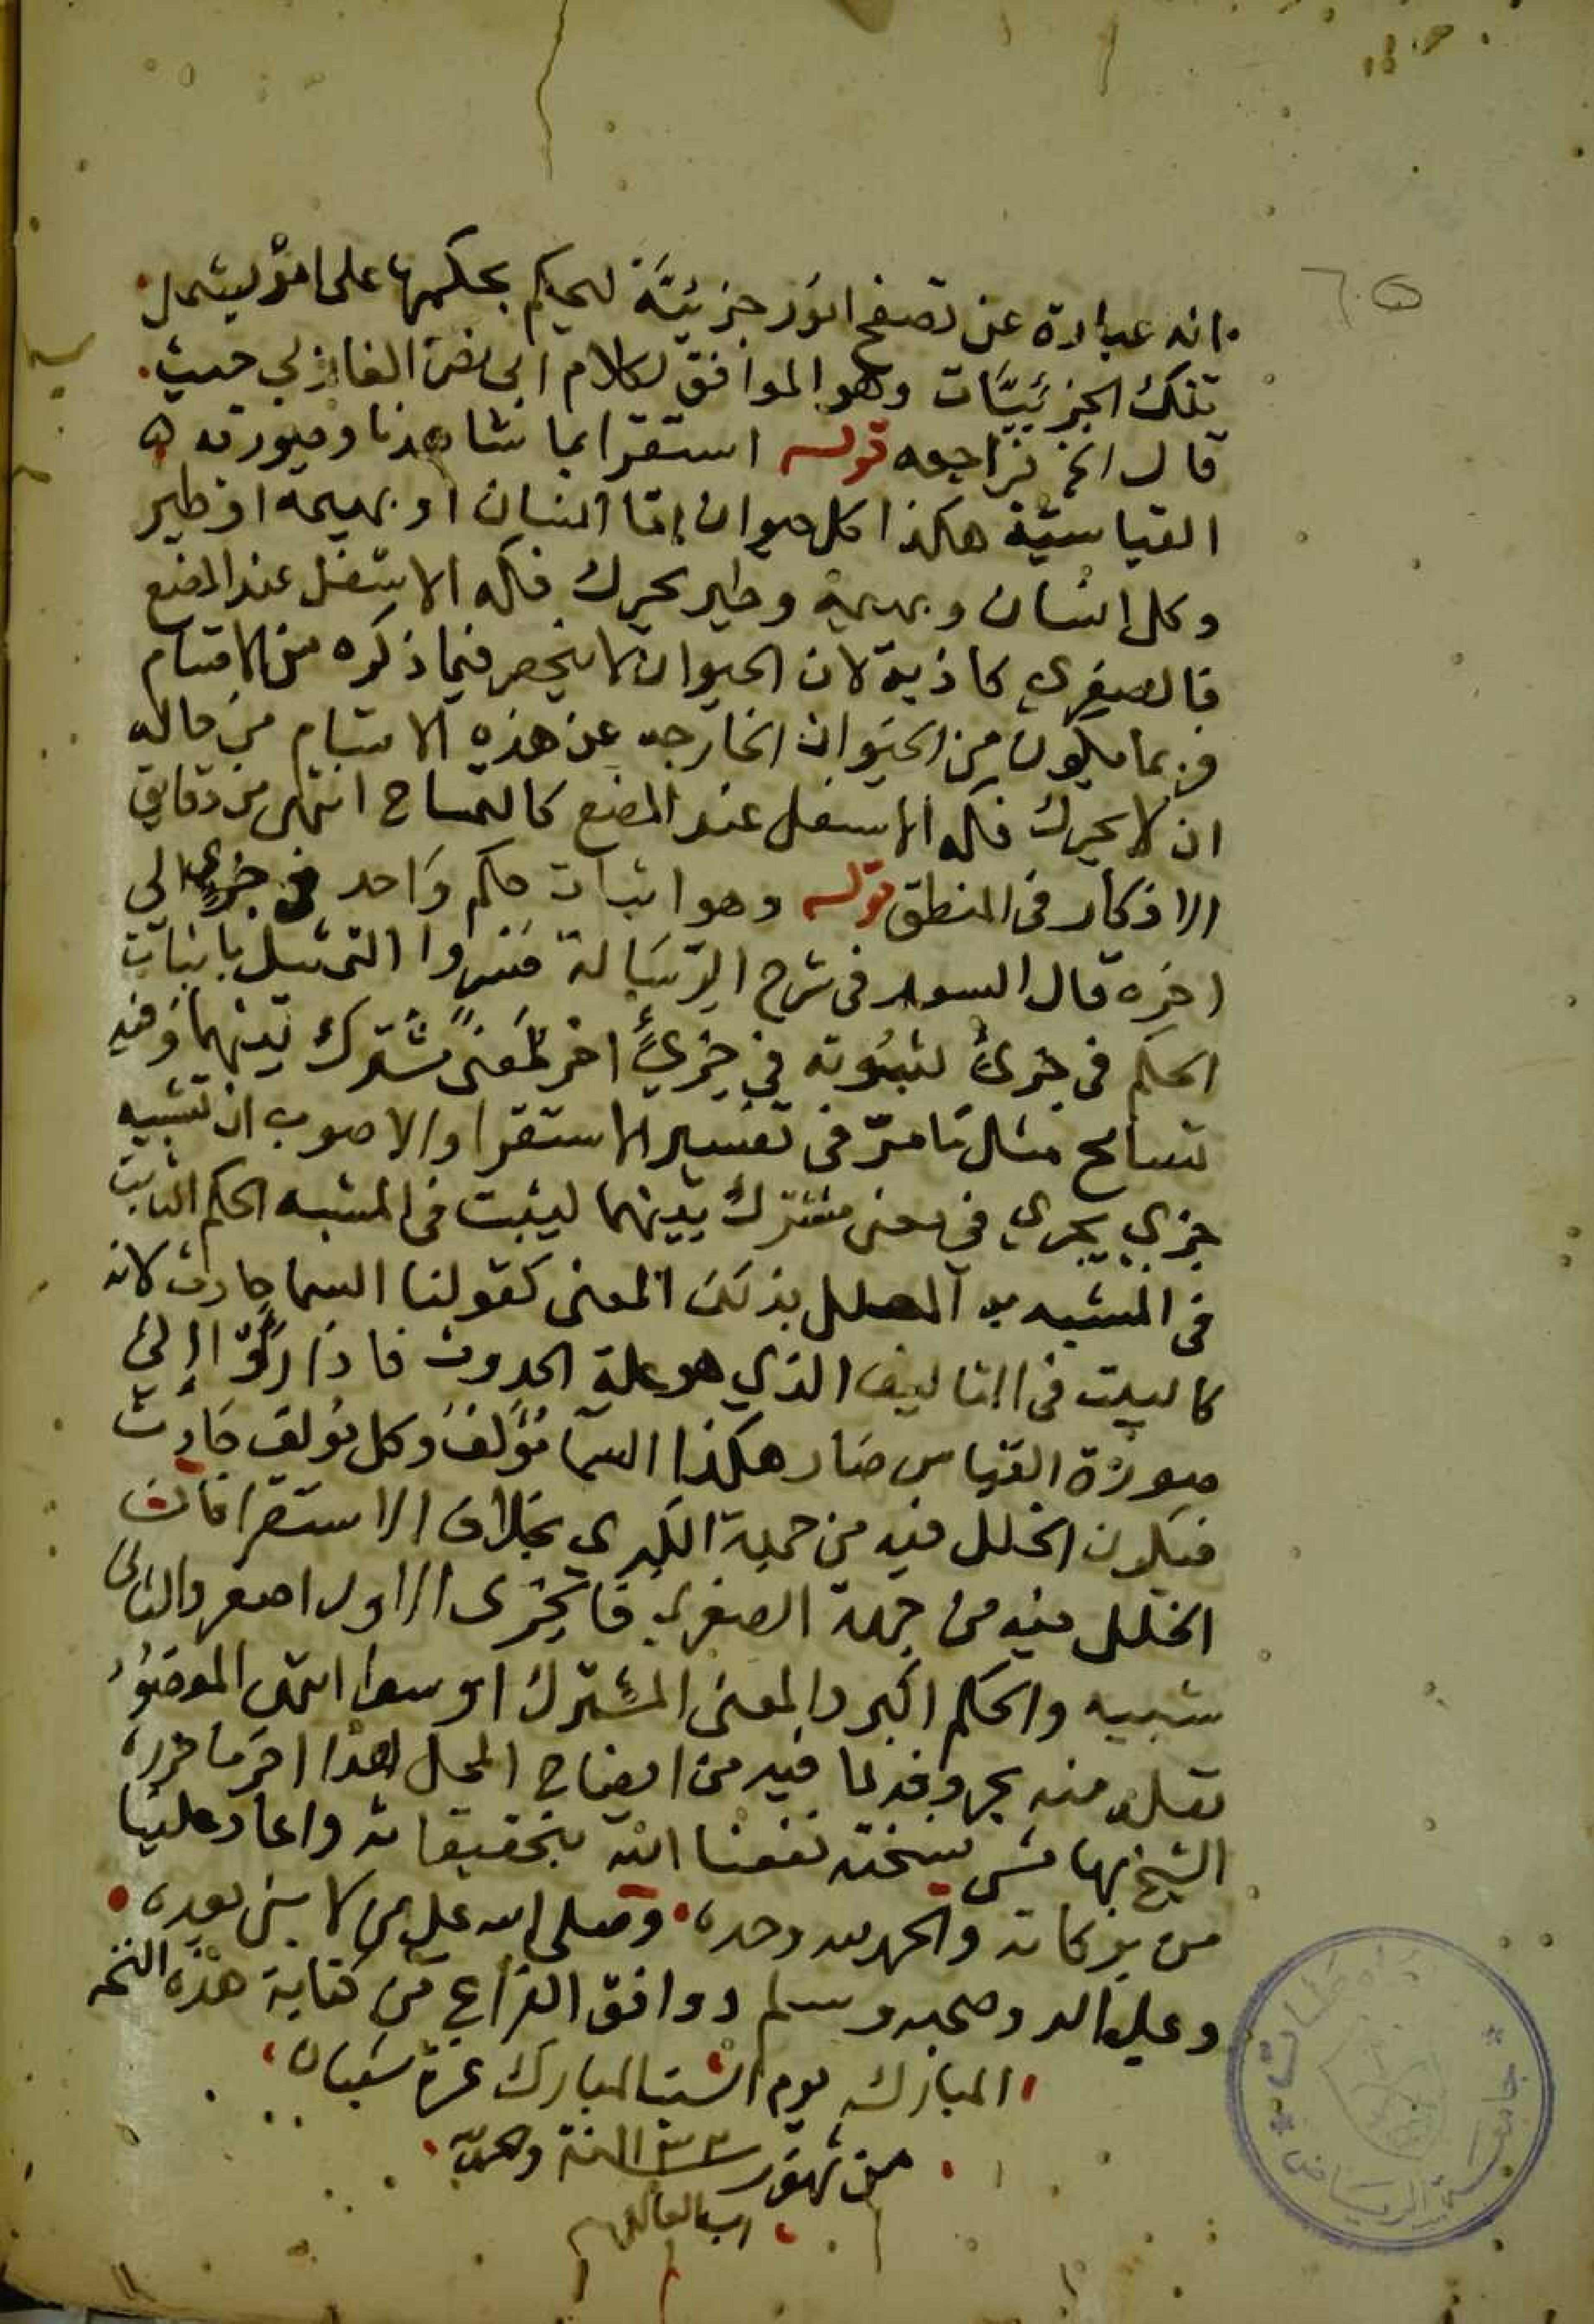 انه عبارة عن تصفح امور جزئيّة ليحكم بحكمها على امر يشمل
تلك الجزئيّات وهو الموافق لكلام ابي نصر الفارابي حيث
قال الخ فراجعه قوله استقرا بما شاهدنا وصورته
القياسيّة هكذا كل حيوان إمّا انسان او بهيمة او طير
وكل إنسان وبهيمة وطير يحرك فكه الاسفل عند المضغ
فالصغرى كاذبة لان الحيوان لا ينحصر فيما ذكره من الاقسام
فربما يكون من الحيوان الخارجة عن هذه الاقسام من حاله
ان لا يحرك فكه الاسفل عند المضغ كالتمساح انتهى من دقايق
الافكار في المنطق قوله وهو اثبات حكم واحد في جزي الى
اخره قال السعد في شرح الرّسالة فسروا التمثيل باثبات
الحكم في جزئ لثبوته في جزئ اخر لمعنى مشترك بينهما وفيه
تسامح مثل ما مرّ في تفسير الاستقرا والاصوب انه تشبيه
جزي بجزي في معنى مشترك بينهما ليثبت في المشبه الحكم الثابت
في المشبه به المعلل بذلك المعنى كقولنا السما حادث لانه
كالبيت في التاليف الذي هو علة الحدوث فاذا ردّ الى
صورة القياس صار هكذا السما مؤلف وكل مؤلف حادث
فيكون الخلل فيه من جهة الكبرى بخلاف الاستقرا فان
الخلل فيه من جهة الصغرى فالجزي الاول اصغر والثاني
شبيه والحكم اكبر والمعنى المشترك اوسط انتهى المقصود
نقله منه بحروفه لما فيه من ايضاح المحل هذا اخر ما قرره
الشيخ بهامش نسخته نفعنا الله بتحقيقاته واعاد علينا
من بركاته والحمد لله وحده وصلى الله على من لا نبي بعده
وعلى اله وصحبه وسلم ووافق الفراغ من كتابة هذه النسخة
المباركه يوم السبت المبارك غرة شعبان
من شهور سنة والحمد لله
رب العالمين